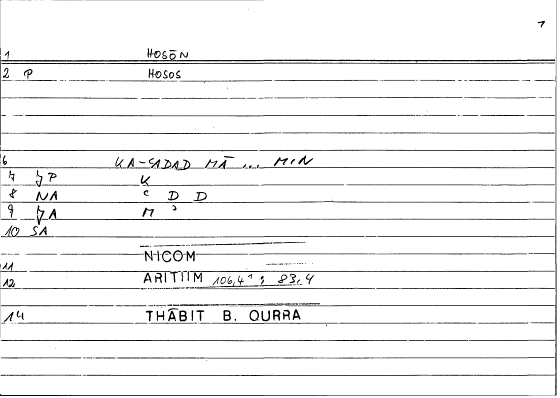 7
1 HOSŌN
2 P HOSOS
6 KA-ʿADAD MĀ ... MIN
7 P K
8 NA ʿ D D
9 A M ʾ
10 SA
NICOM
11
12 ARITIIM 106,4 ; 83,4
14 THĀBIT B. QURRA